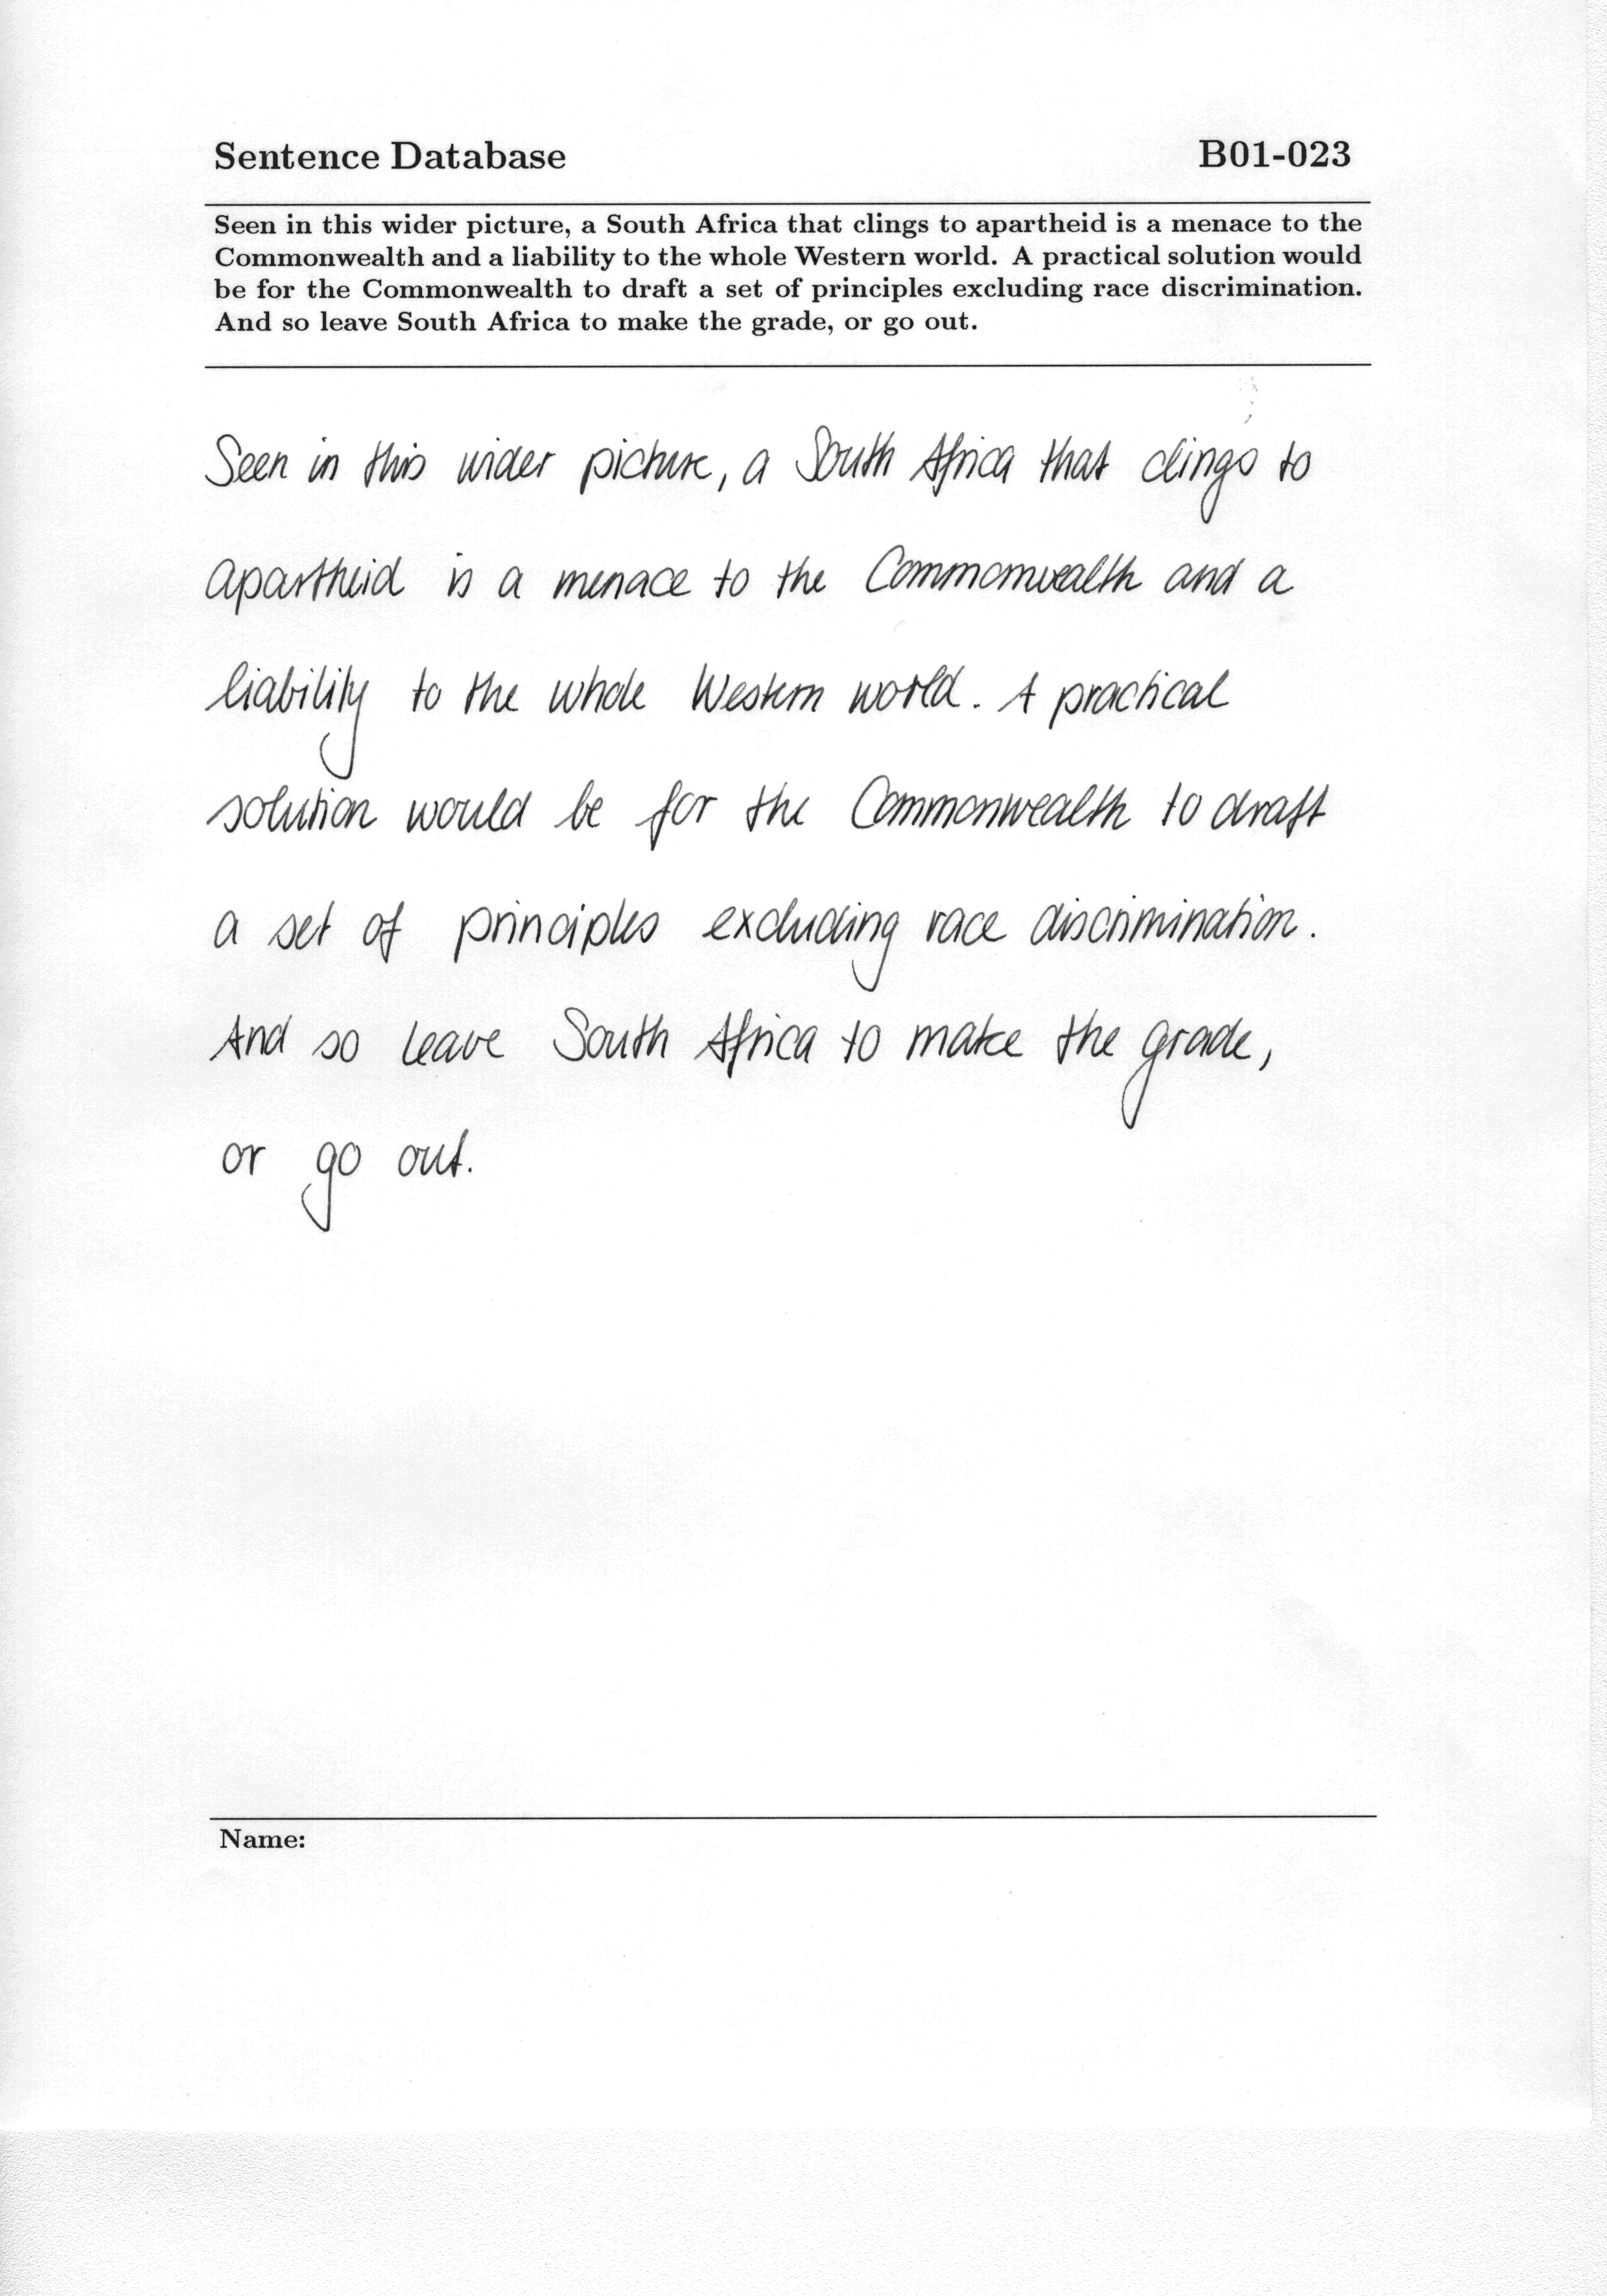 Sentence Database B01-023
Seen in this wider picture, a South Africa that clings to apartheid is a menace to the
Commonwealth and a liability to the whole Western world. A practical solution would
be for the Commonwealth to draft a set of principles excluding race discrimination.
And so leave South Africa to make the grade, or go out.
Seen in this wider picture, a South Africa that clings to
apartheid is a menace to the Commonwealth and a
liability to the whole Western world. A practical
solution would be for the Commonwealth to draft
a set of principles excluding race discrimination.
And so leave South Africa to make the grade,
or go out.
Name: